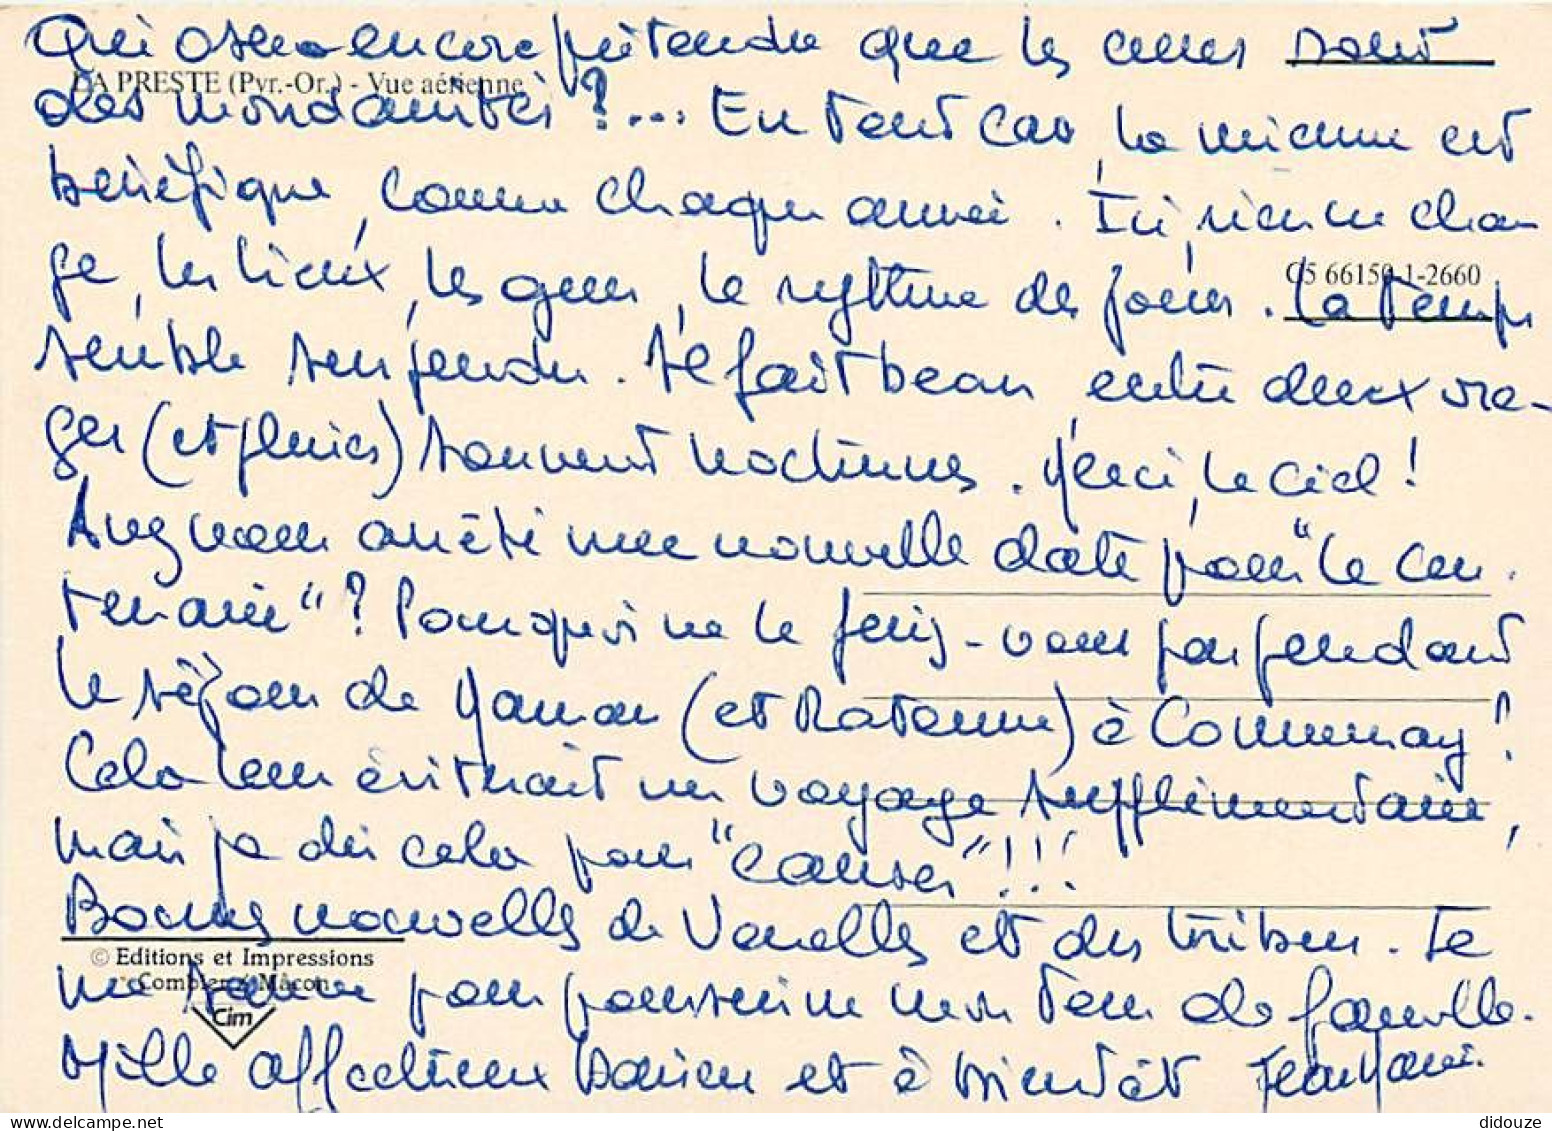 Qui osera encore prétendre que les cures sont
LA PRESTE (Pyr.-Or.) - Vue aérienne
des mondanités ?... En tout cas, la mienne est
bénéfique, comme chaque année. Ici, rien ne chan
C5 66150-1-2660
ge, les lieux, les gens, le rythme des jours. Le temps
semble suspendu. Il fait beau entre deux ora-
ges (et pluies) souvent nocturnes. Merci, le ciel !
Avez vous arrêté une nouvelle date pour "le cen-
tenaire" ? Pourquoi ne le feriez-vous pas pendant
le séjour de Maman (et Ratoune) à Communay ?
Cela leur éviterait un voyage supplémentaire,
mais je dis cela pour "causer" !!!
Bonnes nouvelles de Vanelle et des tribus. Je
© Editions et Impressions
Combier Mâcon
Cim
me sauve pour poursuivre mon tour de famille.
Mille affectueux baisers et à bientôt